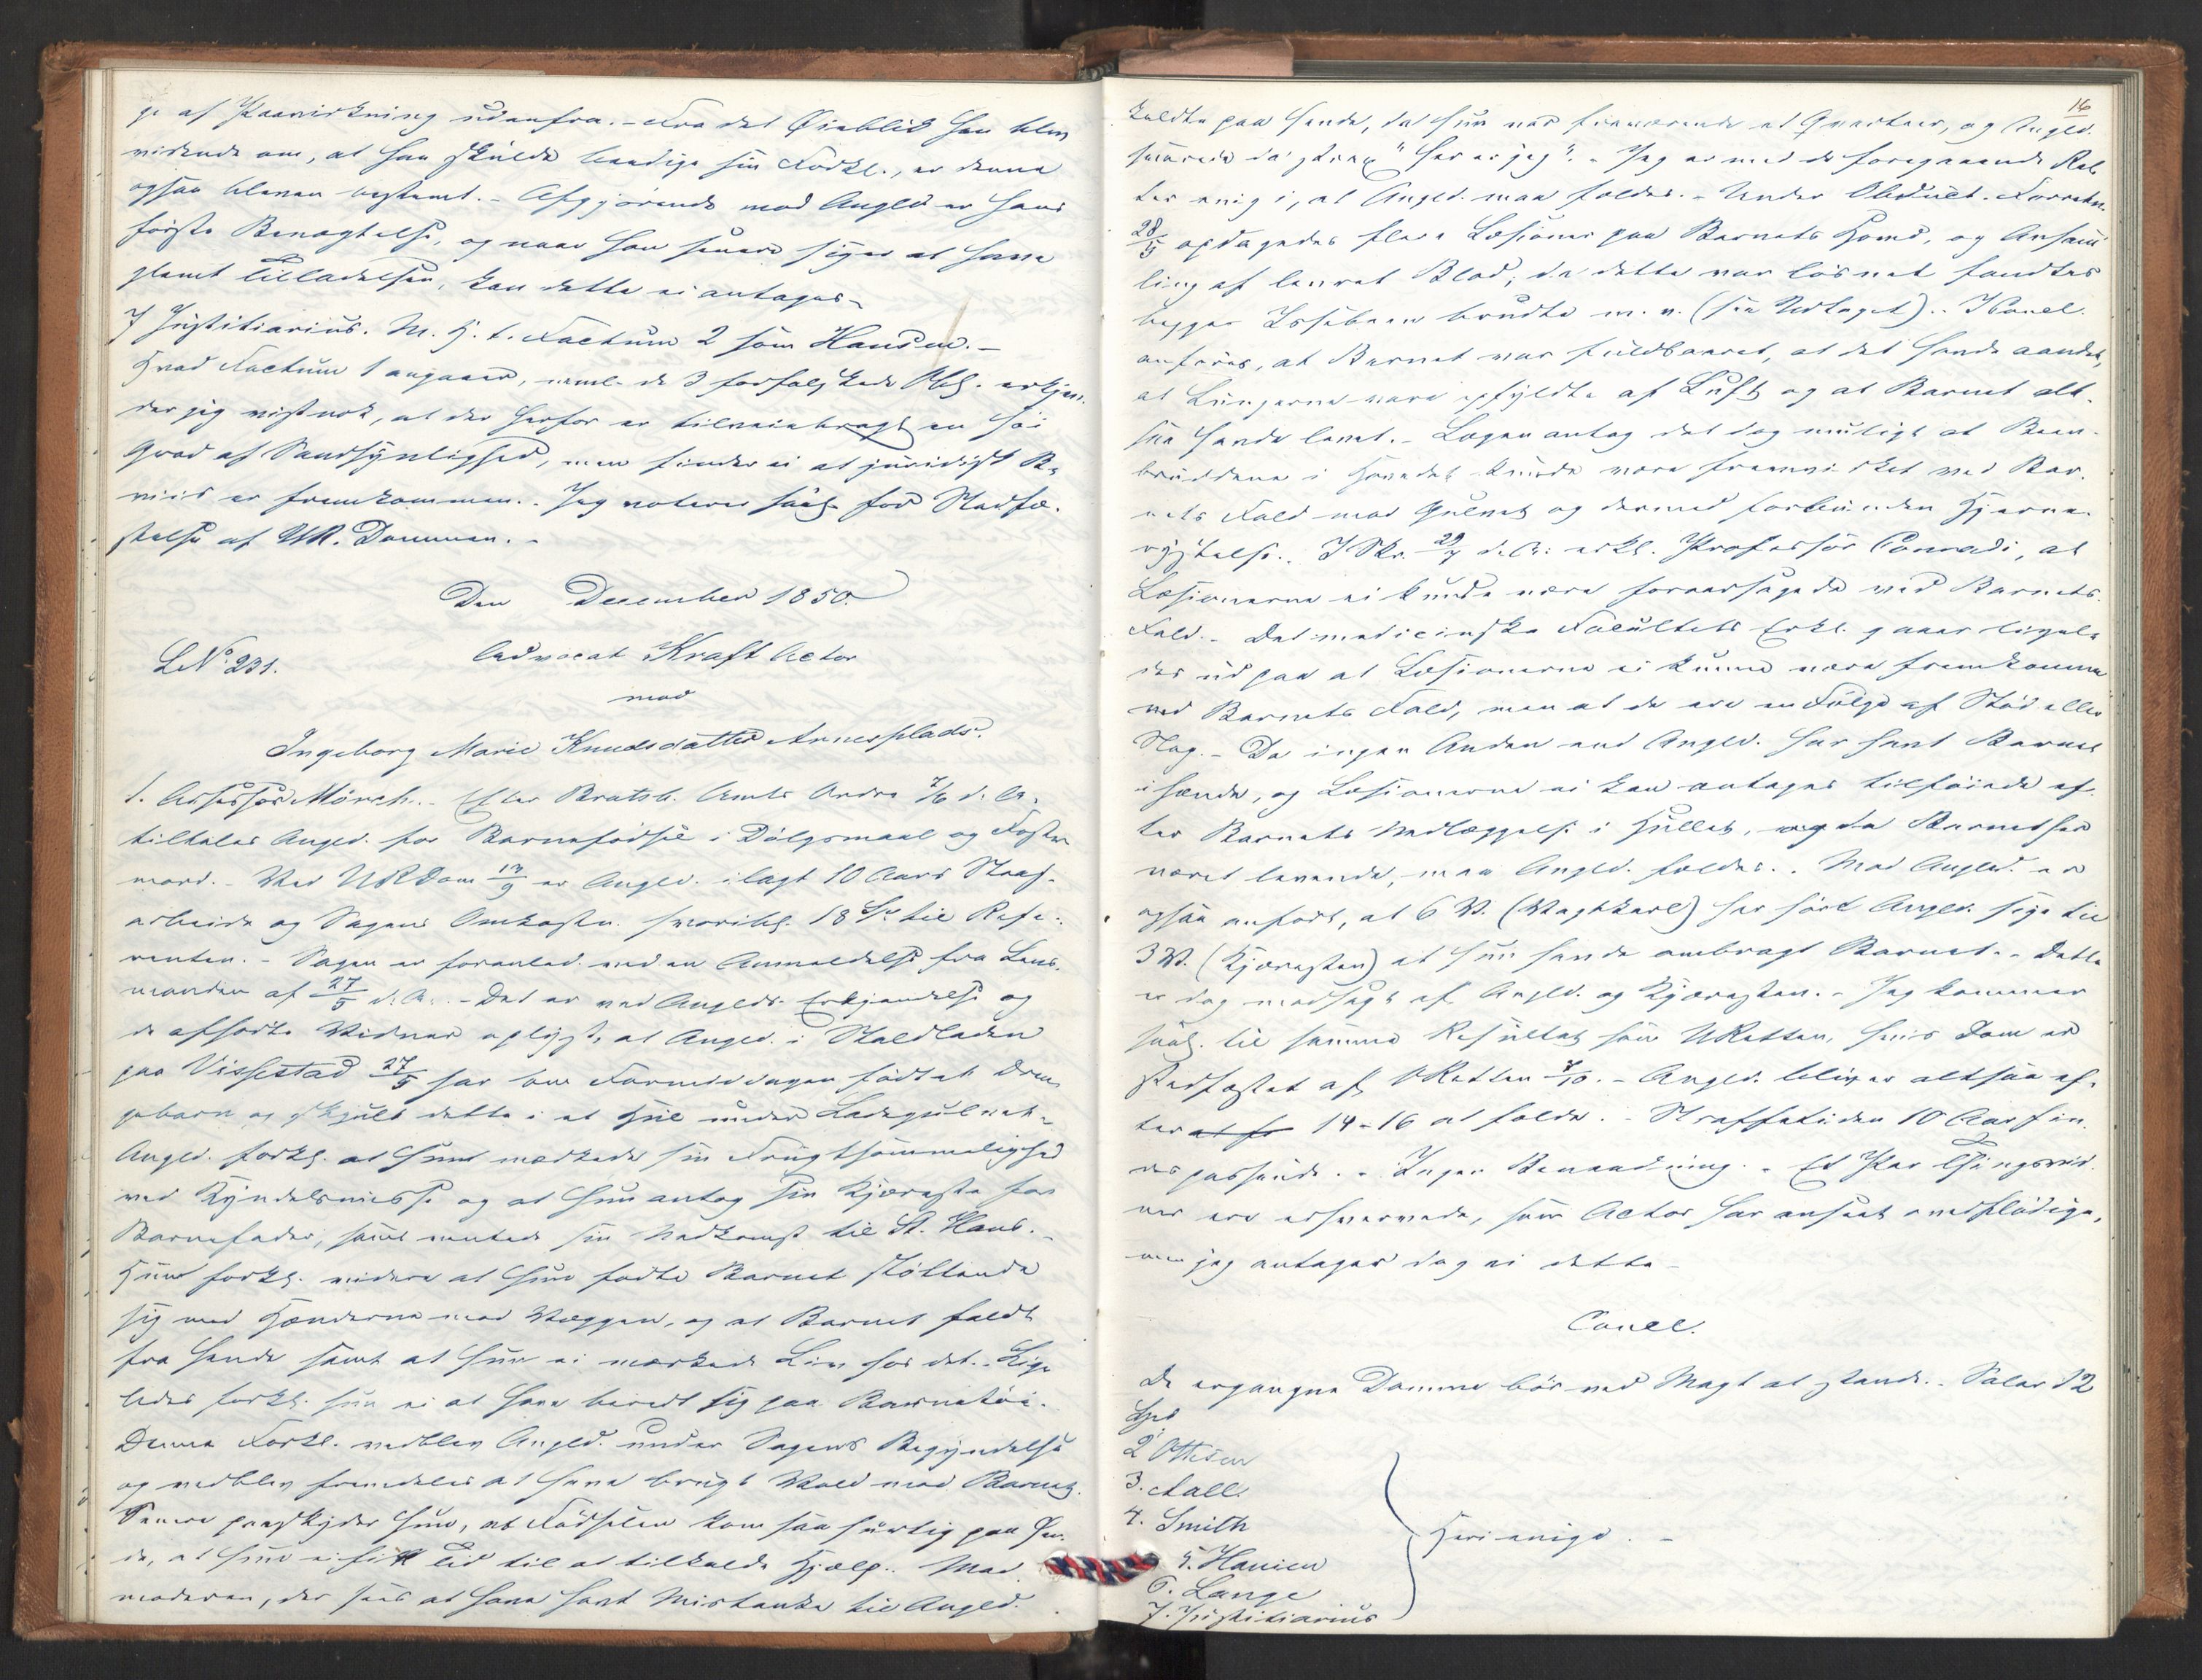 ge af Paavirkning udenfra. – Fra det Øieblik han blev
vidende om, at han skulde beedige sin Forkl., er denne
ogsaa bleven bestemt. – Afgjørende mod Angld er hans
første Benægtelse, og naar han senere siger at have
glemt Tilladelsen, kan dette ei antages –
7 Justitiarius. M. H. t. Factum 2 som Hansen. –
Hvad Factum 1 angaaer, neml. de 3 forfalskede Obl. erkjen-
der jeg vistnok, at der herfor er tilveiebragt en høi
Grad af Sandsynlighed, men finder ei at juridisk Be-
viis er fremkommen. – Jeg voterer saal. for Stadfæ-
stelse af UR. Dommen. –
Den December 1850.
L.№ 231. Advocat Kraft Actor
mod
Ingeborg Marie Knudsdatter Arnesplads.
1. Assessor Mörch. – Efter Bratsb. Amts Ordre 7/6 d. A.
tiltales Angld. for Barnefødsel i Dølgsmaal og Foster-
mord. – Ved URDom 13/9 er Angld. ilagt 10 Aars Straf-
arbeide og Sagens Omkostn. hvoribl. 18 Sp til Refe-
renten. – Sagen er foranled. ved en Anmeldelse fra Lens-
manden af 27/5 d. A. – Det er ved Anglds Erkjendelse og
de afhørte Vidner oplyst, at Angld. i Staldladen
paa Vissestad 27/5 har om Formiddagen født et Dren-
gebarn og skjult dette i et Hul under Ladegulvet –
Angld. forkl. at hun mærkede sin Frugtsommelighed
ved Kyndelsmisse og at hun antog sin Kjæreste for
Barnefader, samt ventede sin Nedkomst til St. Hans. –
Hun forkl. videre at hun fødte Barnet støttende
sig med Hænderne mod Væggen, og at Barnet faldt
fra hende samt at hun ei mærkede Liv hos det. – Lige-
ledes forkl. hun ei at have beredt sig paa Barnetøi.
Denne Forkl. vedblev Angld. under Sagens Begyndelse
og vedblev fremdeles at have brugt Vold mod Barnet.
Senere paaskyder hun, at Fødselen kom saa hurtig paa hen-
de, at hun ei fik Tid til at tilkalde Hjælp. – Mad-
moderen, der sees at have havt Mistanke til Angld.
16
kaldte paa hende, da hun var fraværende et Qvarteer, og Angld.
svarede da strax "her er jeg". – Jeg er med de foregaaende Ret-
ter enig i, at Angld. maa fældes. – Under Obduct. Forretn.
28/5 opdagedes flere Læsioner paa Barnets Hoved, og Ansam-
ling af levret Blod; da dette var løsnet fandtes
begge Issebeen brudte m. v. (see Udtoget). – I Concl.
anføres, at Barnet var fuldbaaret, at det havde aandet,
at Lungerne vare opfyldte af Luft og at Barnet alt-
saa havde levet. – Lægen antog det dog muligt at Been-
bruddene i Hovedet kunde være fremvirket ved Bar-
nets Fald mod Gulvet og dermed forbunden Hjerne-
rystelse. – I Skr. 29/7 d. A. erkl. Professor Conradi, at
Læsionerne ei kunde være foraarsagede ved Barnets
Fald. – Det medicinske Facultets Erkl. gaaer ligele-
des ud paa at Læsionerne ei kunne være fremkomne
ved Barnets Fald, men at de ere en Følge af Stød eller
Slag. – Da ingen Anden end Angld. har havt Barnet
i hænde, og Læsionerne ei kan antages tilføiede ef-
ter Barnets Nedlæggelse i Hullet, og da Barnet har
været levende, maa Angld. fældes. – Mod Angld. er
ogsaa anført, at 6 V. (Vagtkarl) har hørt Angld. sige til
3 V. (Kjæresten) at hun havde ombragt Barnet. – Dette
er dog modsagt af Angld. og Kjæresten. – Jeg kommer
saal. til samme Resultat som URetten, hvis Dom er
stadfæstet af ORetten 7/10. – Angld. bliver altsaa ef-
ter 14-16 at fælde. – Straffetiden 10 Aar fin-
des passende. – Ingen Bemærkning. – Et Par Thingsvid-
ner ere erhvervede, som Actor har anseet overflødige,
men jeg antager dog ei dette –
Concl.
De ergangne Domme bør ved Magt at stande. – Salær 12
Spd
2 Ottesen
3. Aall.
4. Smith
5. Hansen
Heri enige. –
6. Lange
7. Justitiarius